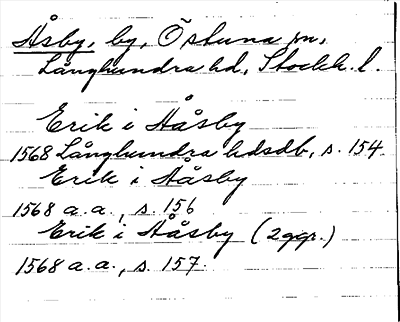 Åsby, by, Östuna sn,
Långhundra hd, Stockh. l.
Erik i Håsby
1568 Långhundra hdsdb, s. 154.
Erik i Håsby
1568 a.a., s. 156
Erik i Håsby (2ggr.)
1568 a.a., s. 157.